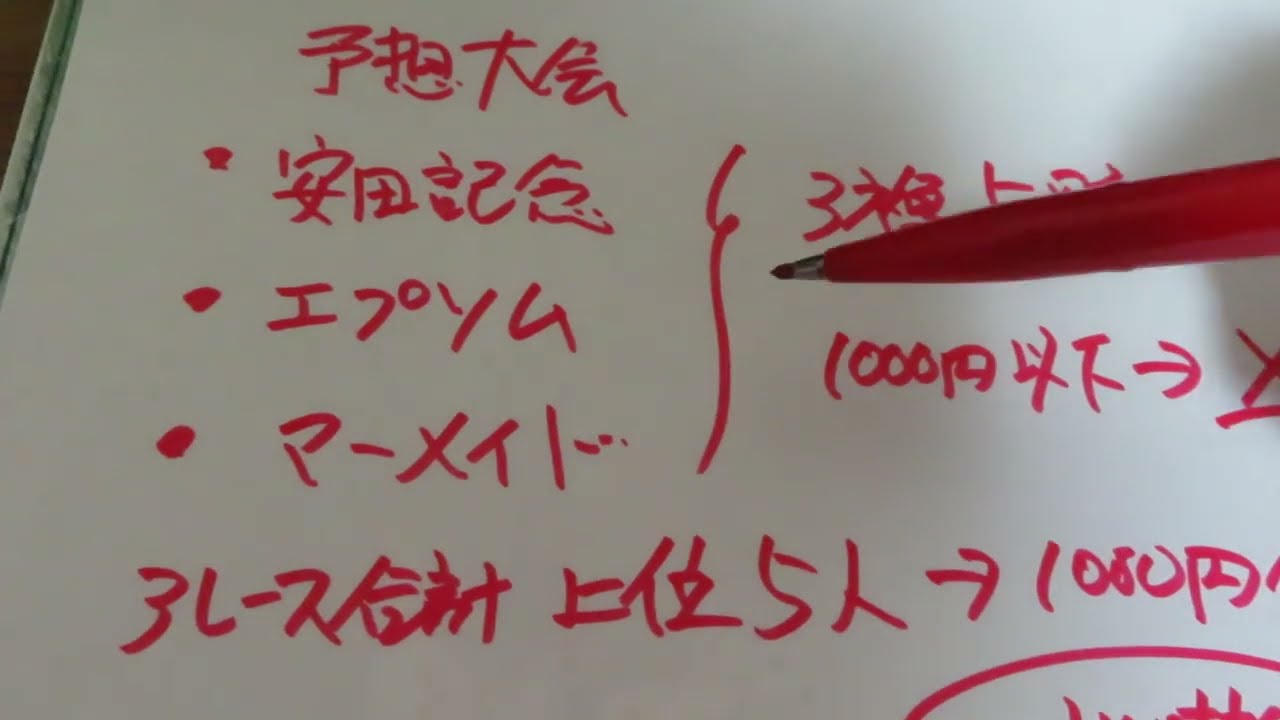 予想大会
・安田記念
・エプソム
・マーメイド
3種
1000円以下→
3レース合計 上位5人→1000円